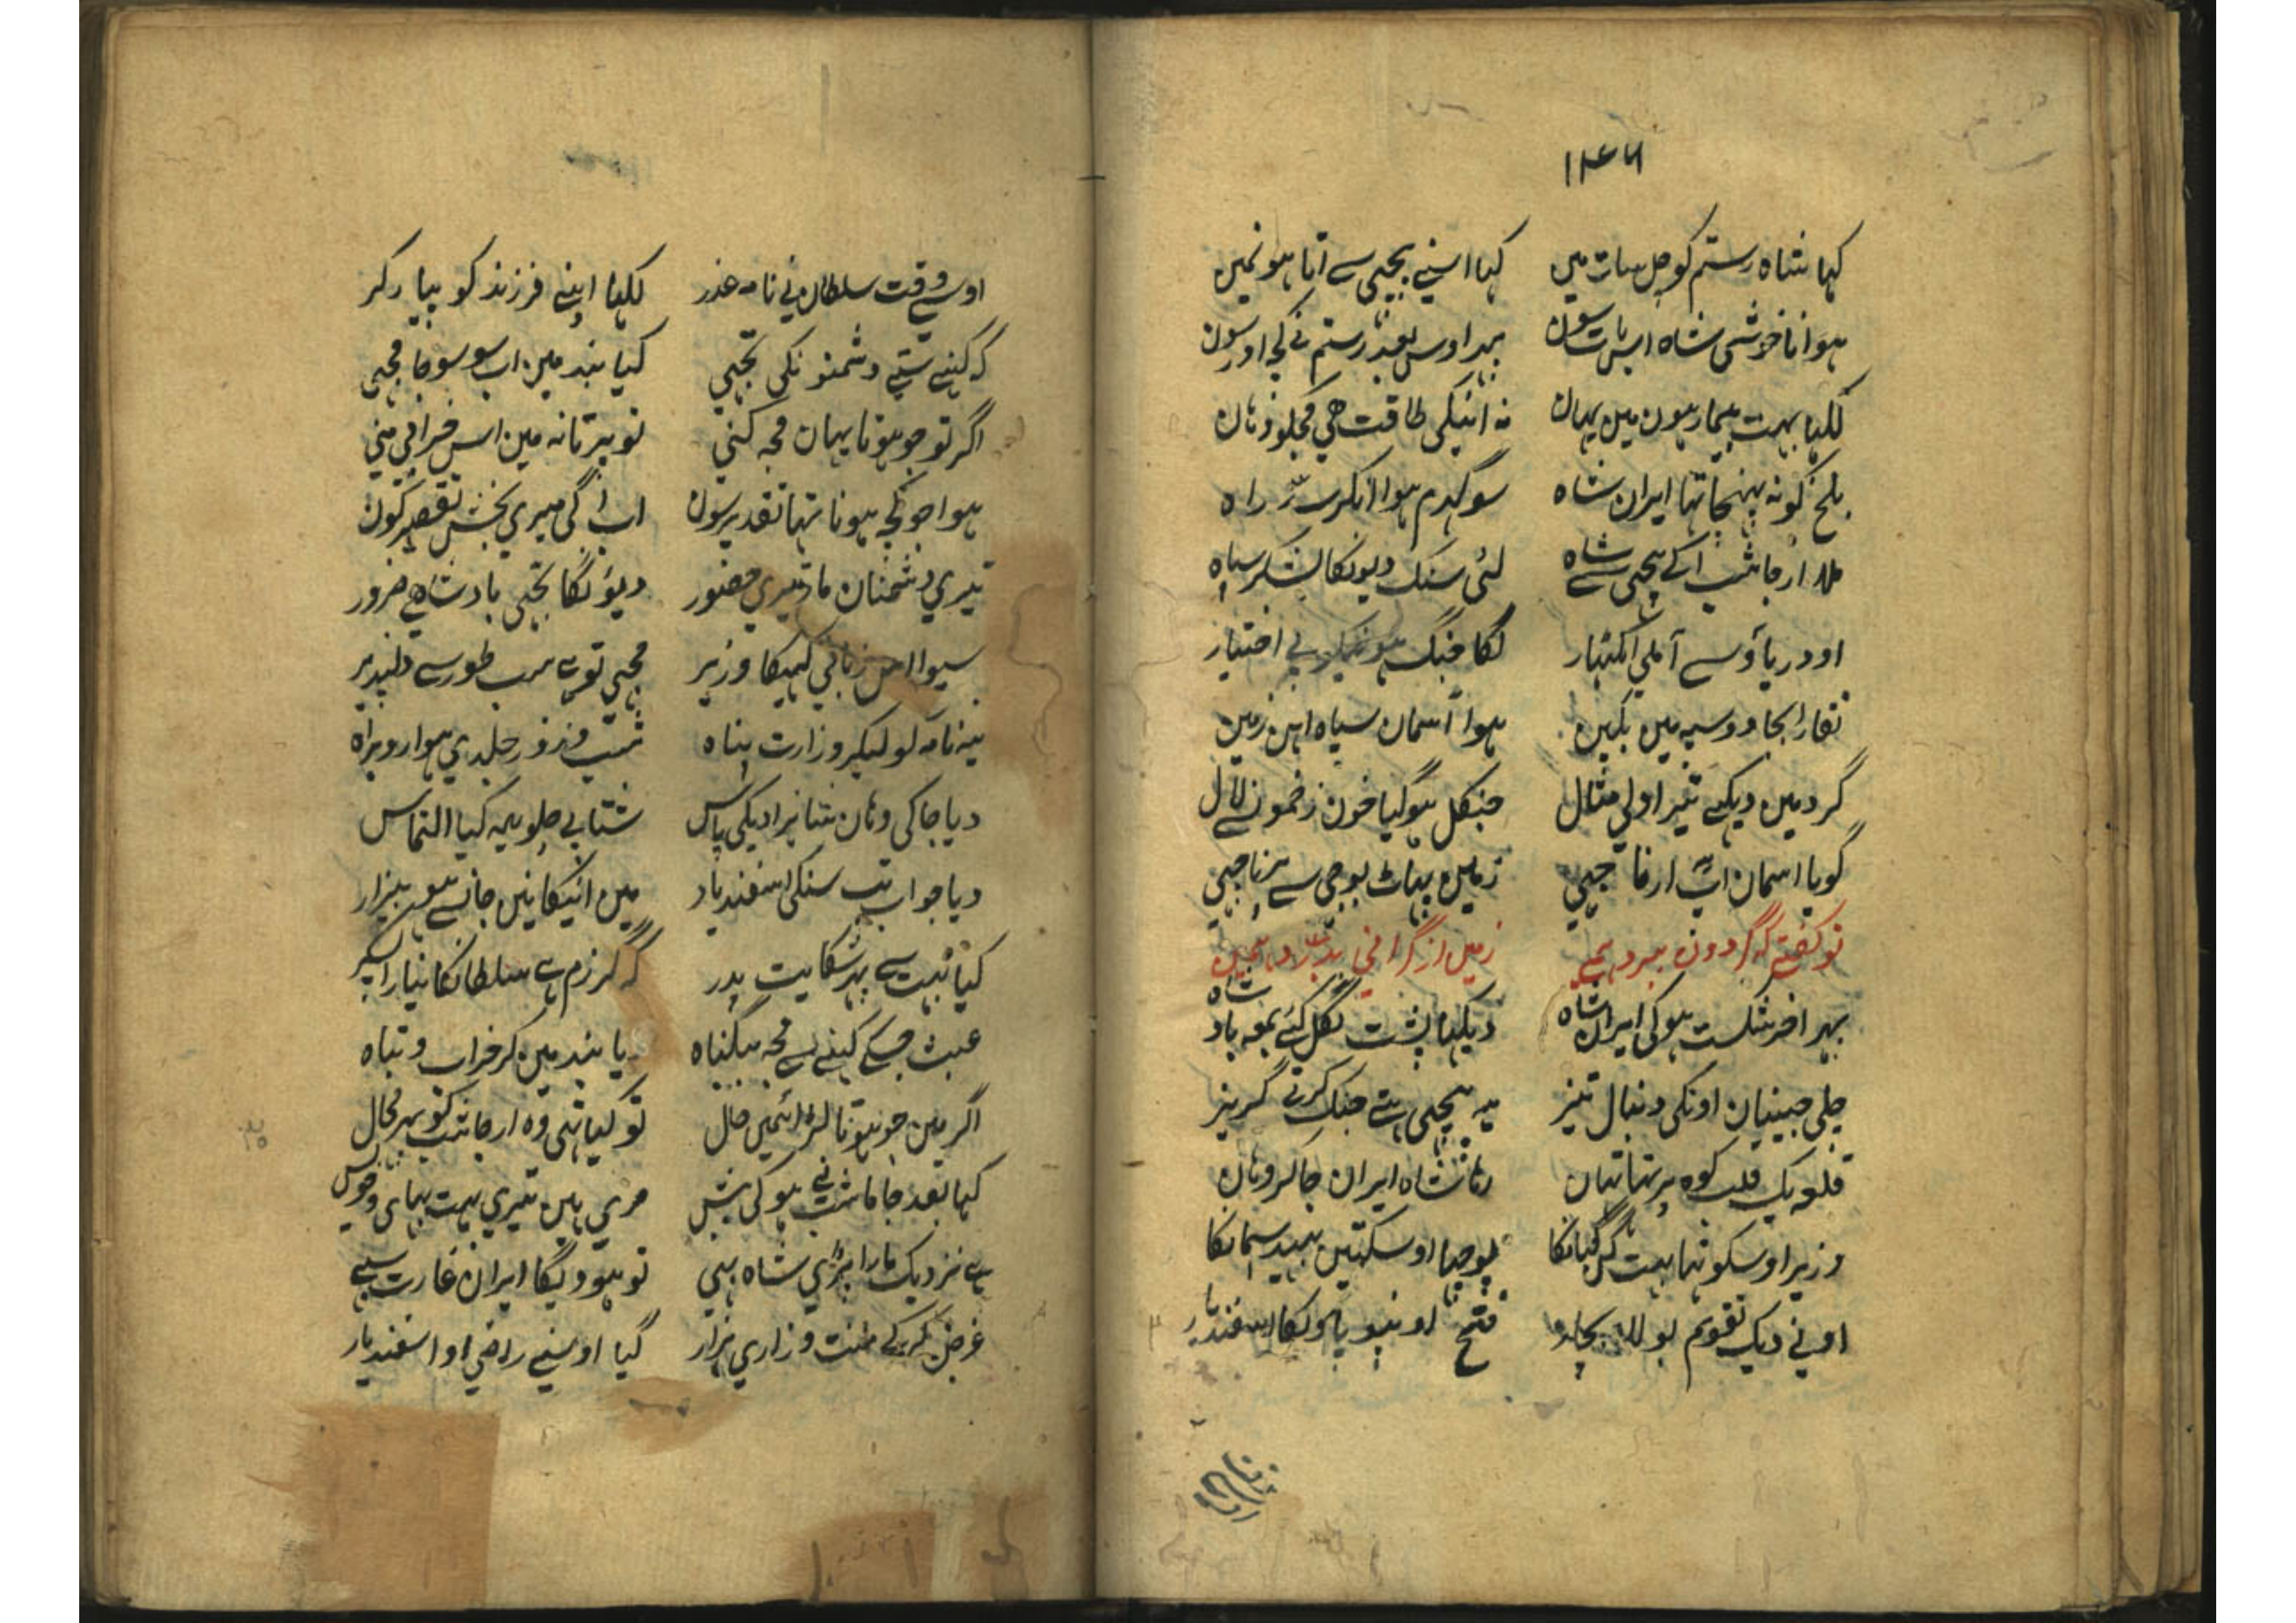 ۱۴۶
کہا شاہ رستم کو چل سات میں کہا اسنے پیچھی سے اتا ہو نمیں
ہوا ناخوشی شاہ اس بات سون بہر اوس بعد رستم نے کچہ اور سون
لکہا بہت بیمار ہون میں یہان نہ انیکی طاقت ھی مجکو وہان
بلخ کو نہ پہنچا تہا ایران شاہ سو کہرم ہوا انکر سر راہ
ملا ارجاشب آکے پیچھی سے شاہ لئی سنک دیونکا لشکر سیاہ
او دریاؤ سے آملی ایکتہار لگا جنگ ہونیکو بے اختیار
نقارا بجا دو سپہ میں یکین ہوا آسمان سیاہ اہن زمین
گرد میں دیکہے تیر اولی مثال جنکل ہوگیا خون زخمون سے لال
گویا اسمان ارتا جیسے زمین پہاٹ بوجی سے
تو گفتے کہ گردون ببرد ہمے زمین از گرانی بدرد ہمے
بہر اخر شکست ہوکی ایران شاہ دیکہا پشت نکل گئے بمعہ بادشاہ
چلی چینیان اونکی دنبال تیز یہ پیچھی ہتے جنک کرتے گریز
قلعہ یک قلب کوہ پر تہا تہان رہا شاہ ایران جاکر وہان
وزیر اوسکو تہا بہت گن گیانکا پوچہا اوسکتین بہید سمانکا
اونے دیک تقویم بولا بچار فتح اونپو پاویگا اسفندیار
اوسے وقت سلطان نے نامہ عذر لکہا اپنے فرزند کو پیار کر
کہ کینے ستے دشمنونکی تجہی کیا بند میں اب سو سوجا مجہی
اگر تو جو ہوتا یہان مجہ کنی تو پرتا نہ میں اس خرابی منی
ہوا جو کچہ ہونا تہا تقدیر سون اب اگی میری بخش تقصیر کون
تیری دشمنان مار تیری حضور دیؤنگا تجہی بادشاہی ضرور
سیوا اس زبانی کہیگا وزیر مجہی توں سب طور سے دلپذیر
یہ نامہ کو لیکر وزارت پناہ شب و روز جلدی ہوا روبراہ
دیا جاکی وہان شاہزادیکی پاس شتابی چلو یہ کیا التماس
دیا جواب تب سنکی اسفندیار میں انیکا نین جان سے ہو بیزار
کیا بہت سے بہر شکایت پدر کہ گرزم ہے سلطانکا نیارا پسر
عبث جسکے کہنے سے مجہ بیگناہ یا بند میں کر خراب و تباہ
اگر میں جو ہوتا لڑائیمیں حال تو کیا تہی وہ ارجاشب کو بہر مجال
کہا بعد جاماشب نے ہوکی پیش مری ہین تیری بہت بہای و خویش
ہے نزدیک مارا پڑی شاہ بہی تو ہوویگا ایران غارت سبہے
غرض کرکے منت و زاری ہزار کیا اوسنے راضی او اسفندیار